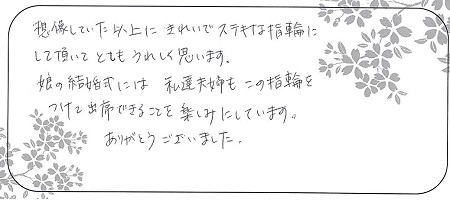 想像していた以上に きれいで ステキな指輪に
して頂いて とても うれしく思います。
娘の結婚式には 私達夫婦も この指輪を
つけて出席できることを 楽しみにしています。
ありがとうございました。